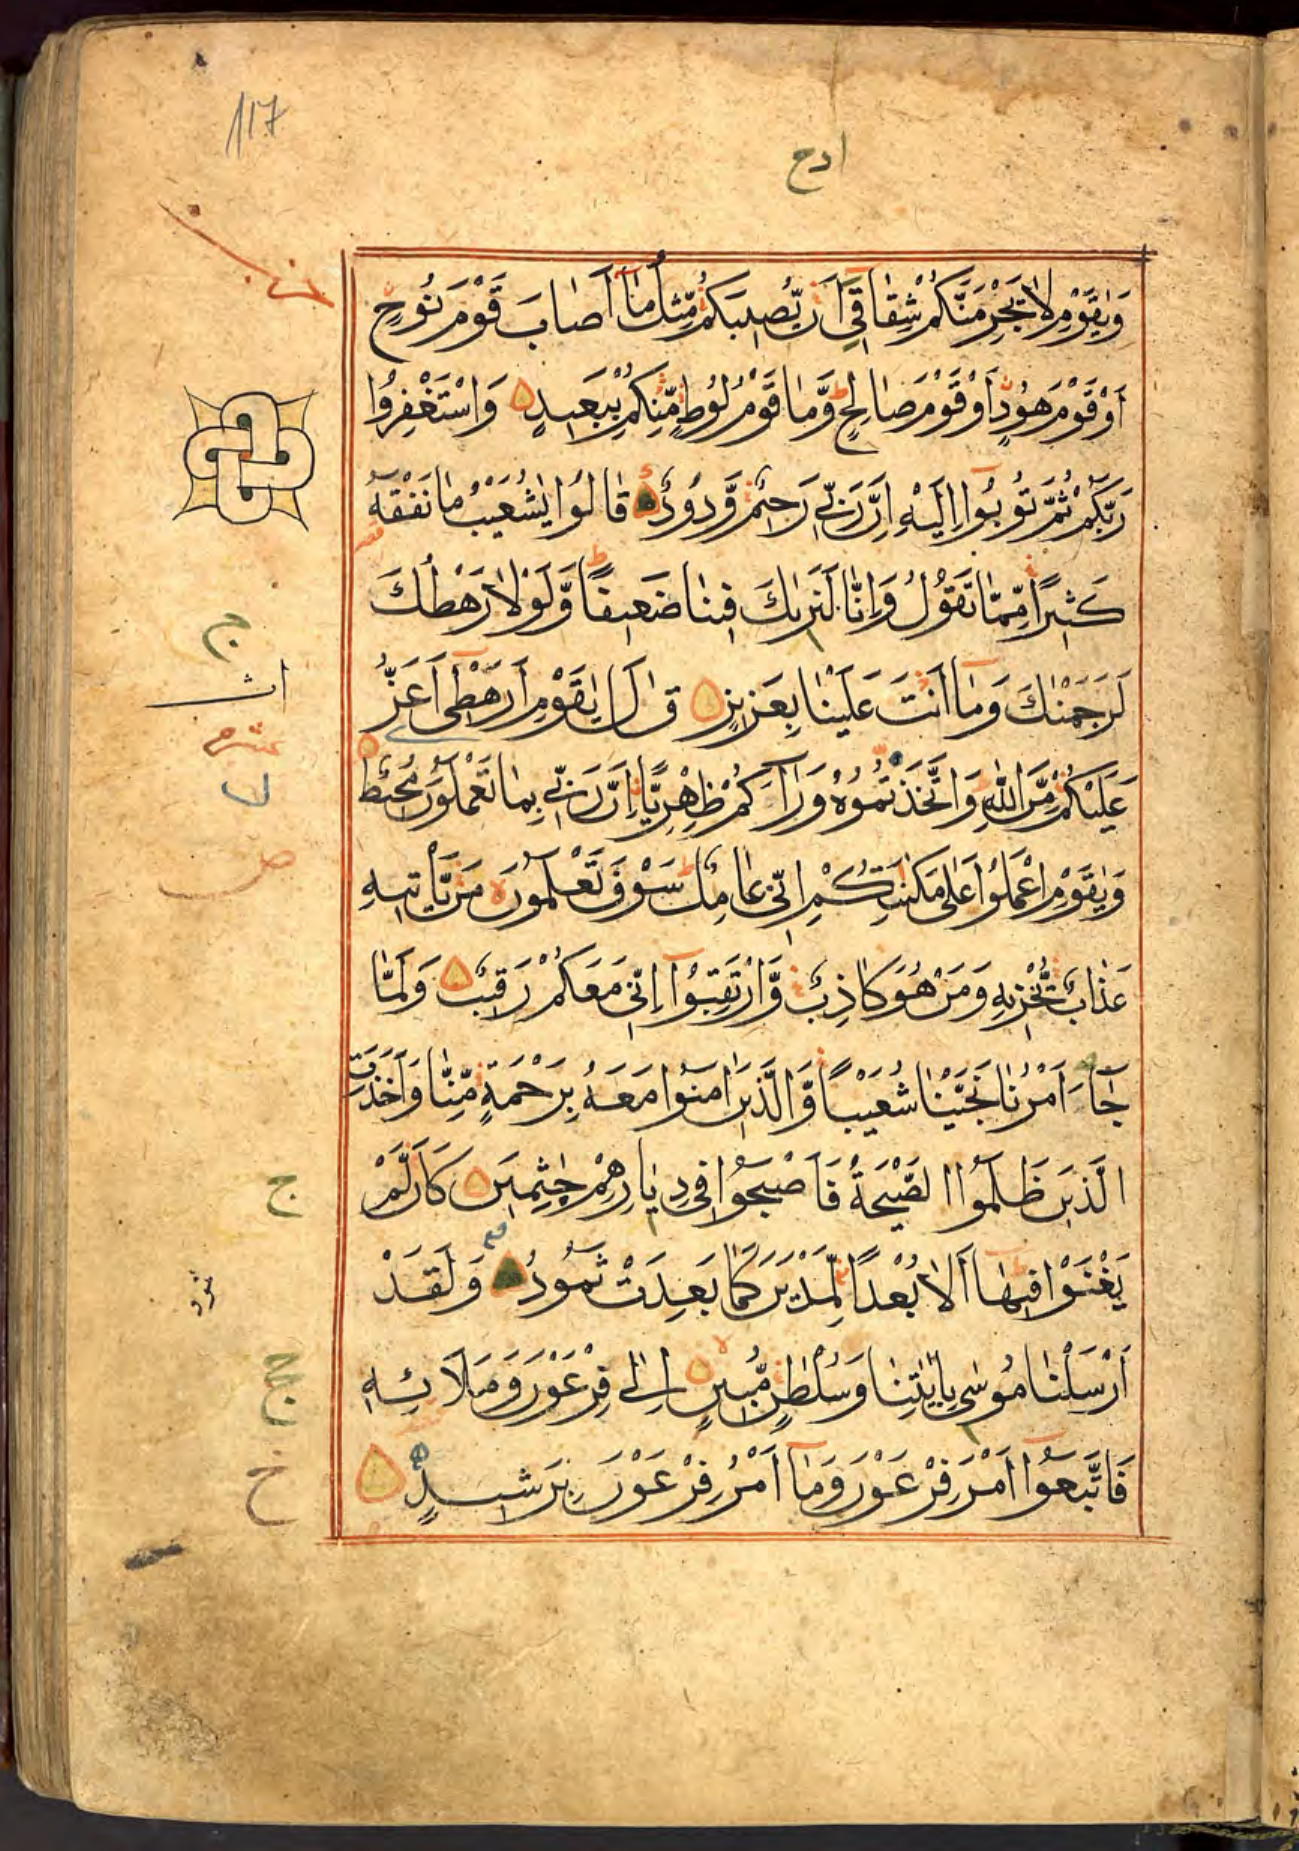 117
ادح
وَيٰقَوْمِ لَا يَجْرِمَنَّكُمْ شِقَاقِيٓ اَنْ يُّصِيبَكُمْ مِّثْلُ مَآ اَصَابَ قَوْمَ نُوحٍ
اَوْ قَوْمَ هُودٍ اَوْ قَوْمَ صَالِحٍ وَّمَا قَوْمُ لُوطٍ مِّنْكُمْ بِبَعِيدٍ وَاسْتَغْفِرُوا
رَبَّكُمْ ثُمَّ تُوبُوٓا اِلَيْهِ اِنَّ رَبِّي رَحِيمٌ وَّدُودٌ قَالُوا يٰشُعَيْبُ مَا نَفْقَهُ
كَثِيرًا مِّمَّا تَقُولُ وَاِنَّا لَنَرٰىكَ فِينَا ضَعِيفًا وَّلَوْلَا رَهْطُكَ
لَرَجَمْنٰكَ وَمَآ اَنْتَ عَلَيْنَا بِعَزِيزٍ قَالَ يٰقَوْمِ اَرَهْطِيٓ اَعَزُّ
عَلَيْكُمْ مِّنَ اللّٰهِ وَاتَّخَذْتُمُوهُ وَرَآءَكُمْ ظِهْرِيًّا اِنَّ رَبِّي بِمَا تَعْمَلُونَ مُحِيطٌ
وَيٰقَوْمِ اعْمَلُوا عَلٰى مَكَانَتِكُمْ اِنِّي عَامِلٌ سَوْفَ تَعْلَمُونَ مَنْ يَّأْتِيهِ
عَذَابٌ يُّخْزِيهِ وَمَنْ هُوَ كَاذِبٌ وَّارْتَقِبُوٓا اِنِّي مَعَكُمْ رَقِيبٌ وَلَمَّا
جَآءَ اَمْرُنَا نَجَّيْنَا شُعَيْبًا وَّالَّذِينَ اٰمَنُوا مَعَهُ بِرَحْمَةٍ مِّنَّا وَاَخَذَتِ
الَّذِينَ ظَلَمُوا الصَّيْحَةُ فَاَصْبَحُوا فِي دِيَارِهِمْ جٰثِمِينَ كَاَنْ لَّمْ
يَغْنَوْا فِيهَآ اَلَا بُعْدًا لِّمَدْيَنَ كَمَا بَعِدَتْ ثَمُودُ وَلَقَدْ
اَرْسَلْنَا مُوسٰى بِاٰيٰتِنَا وَسُلْطٰنٍ مُّبِينٍ اِلٰى فِرْعَوْنَ وَمَلَا۟ئِهِ
فَاتَّبَعُوٓا اَمْرَ فِرْعَوْنَ وَمَآ اَمْرُ فِرْعَوْنَ بِرَشِيدٍ